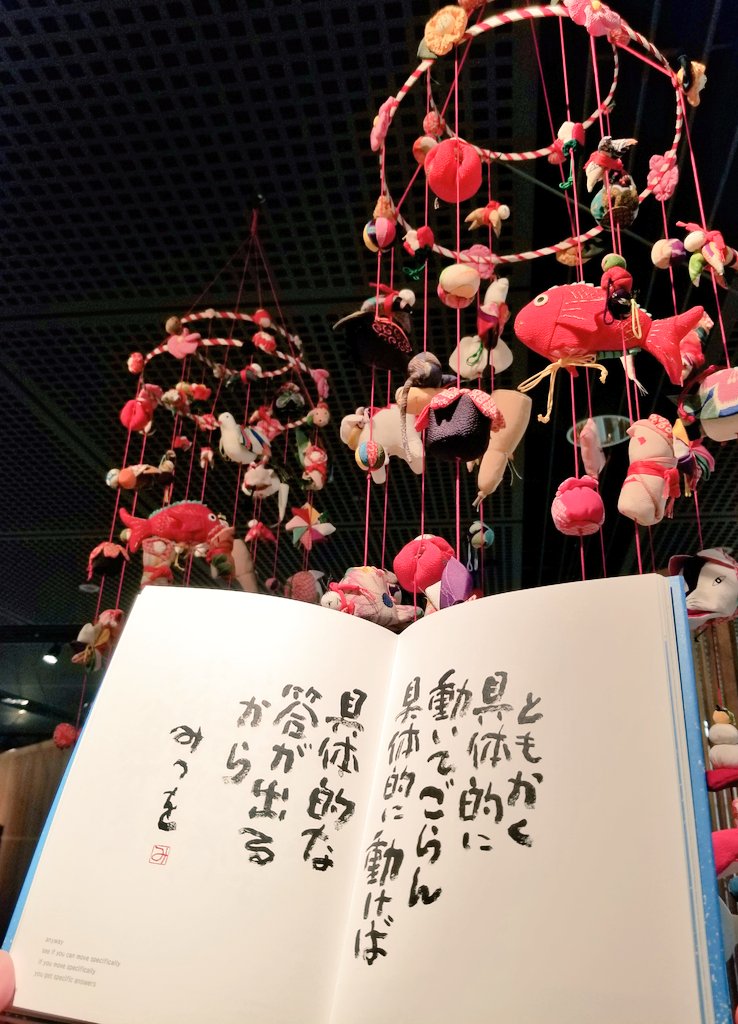 ともかく
具体的に
動いてごらん
具体的に動けば
具体的な
答が出る
から
みつを
み
anyway
see if you can move specifically
if you move specifically
you get specific answers